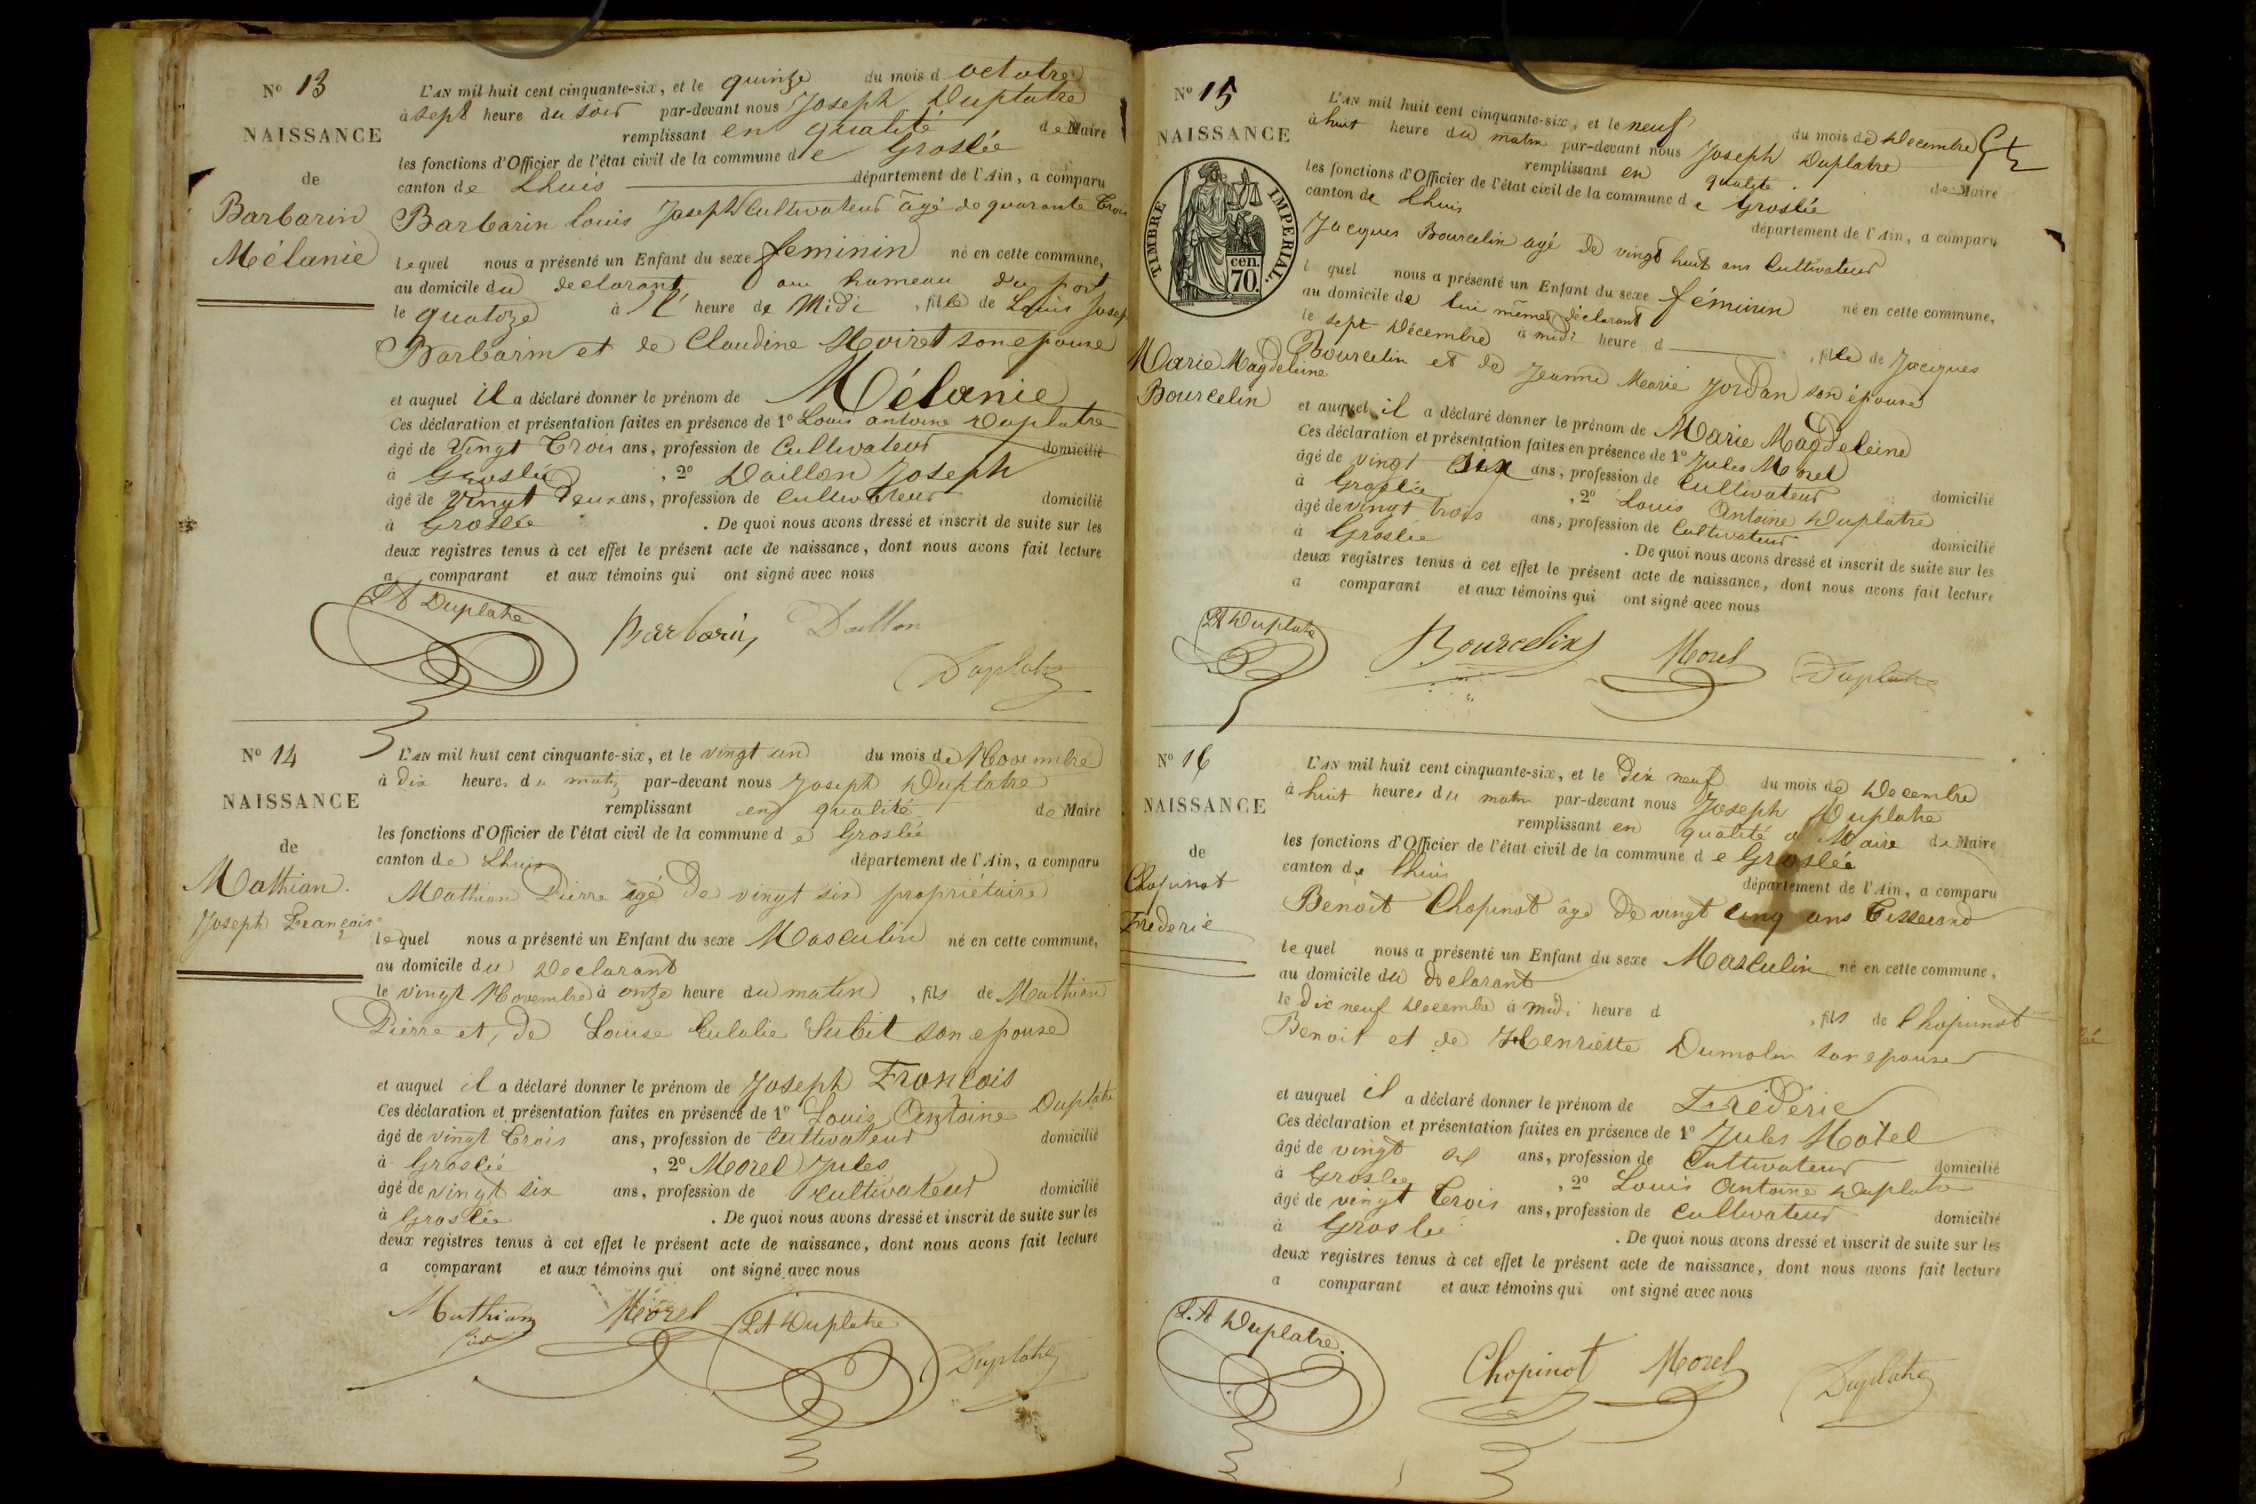 N° 13
NAISSANCE
de
Barbarin
Mélanie
L'AN mil huit cent cinquante-six, et le quinze du mois d octobre
à sept heure du soir par-devant nous Joseph Duplatre
remplissant en qualité de Maire
les fonctions d'Officier de l'état civil de la commune de Groslée
canton de Lhuis département de l'Ain, a comparu
Barbarin louis Joseph Cultivateur âgé de quarante Trois
lequel nous a présenté un Enfant du sexe feminin né en cette commune,
au domicile du declarant au hameau du port
le quatorze à l' heure de Midi , fille de Louis Josep
Barbarin et de Claudine Moiret son epouse
et auquel il a déclaré donner le prénom de Mélanie
Ces déclaration et présentation faites en présence de 1° Louis antoine Duplatre
âgé de Vingt Trois ans, profession de Cultivateur domicilié
à Groslée , 2° Daillon Joseph
âgé de Vingt Deux ans, profession de Cultivateur domicilié
à Groslée . De quoi nous avons dressé et inscrit de suite sur les
deux registres tenus à cet effet le présent acte de naissance, dont nous avons fait lecture
a comparant et aux témoins qui ont signé avec nous
LA Duplatre Barbarin Daillon
Duplatre
N° 14
NAISSANCE
de
Mathian.
Joseph François
L'AN mil huit cent cinquante-six, et le vingt un du mois de Novembre
à Dix heures du matin par-devant nous Joseph Duplatre
remplissant en qualité de Maire
les fonctions d'Officier de l'état civil de la commune de Groslée
canton de Lhuis département de l'Ain, a comparu
Mathian Pierre agé De vingt six propriétaire
lequel nous a présenté un Enfant du sexe Masculin né en cette commune,
au domicile du Declarant
le vingt Novembre à onze heure du matin , fils de Mathian
Pierre et, de Louise Eulalie Subit son epouse
et auquel il a déclaré donner le prénom de Joseph François
Ces déclaration et présentation faites en présence de 1° Louis Antoine Duplatre
âgé de vingt Trois ans, profession de Cultivateur domicilié
à Groslée , 2° Morel Jules
âgé de vingt six ans, profession de Cultivateur domicilié
à Groslée . De quoi nous avons dressé et inscrit de suite sur les
deux registres tenus à cet effet le présent acte de naissance, dont nous avons fait lecture
a comparant et aux témoins qui ont signé avec nous
Mathian Morel LA Duplatre
Duplatre
N° 15
NAISSANCE
TIMBRE IMPERIAL.
cen.
70.
Marie Magdeleine
Bourcelin
L'AN mil huit cent cinquante-six, et le neuf du mois de Decembre
à huit heure du matin par-devant nous Joseph Duplatre
remplissant en qualité. de Maire
les fonctions d'Officier de l'état civil de la commune de Groslée
canton de Lhuis département de l'Ain, a comparu
Jacques Bourcelin agé de vingt huit ans Cultivateur
l quel nous a présenté un Enfant du sexe féminin né en cette commune,
au domicile de lui même déclarant
le sept Décembre à midi heure d , fille de Jacques
Bourcelin et de Jeanne Marie Jordan son épouse
et auquel il a déclaré donner le prénom de Marie Magdeleine
Ces déclaration et présentation faites en présence de 1° Jules Morel
âgé de vingt six ans, profession de Cultivateur domicilié
à Groslée , 2° Louis Antoine Duplatre
âgé de vingt trois ans, profession de Cultivateur domicilié
à Groslée . De quoi nous avons dressé et inscrit de suite sur les
deux registres tenus à cet effet le présent acte de naissance, dont nous avons fait lecture
a comparant et aux témoins qui ont signé avec nous
LA Duplatre Bourcelin Morel Duplatre
N° 16
NAISSANCE
de
Chopinot
Frederic
L'AN mil huit cent cinquante-six, et le Dix neuf du mois de Decembre
à huit heures du matin par-devant nous Joseph Duplatre
remplissant en qualité de Maire de Maire
les fonctions d'Officier de l'état civil de la commune de Groslée
canton de Lhuis département de l'Ain, a comparu
Benoit Chopinot âge De vingt cinq ans Tisserand
lequel nous a présenté un Enfant du sexe Masculin né en cette commune,
au domicile du declarant
le Dix neuf Decembre à midi heure d , fils de Chopinot
Benoit et de Henriette Dumolin son epouse
et auquel il a déclaré donner le prénom de Fréderic
Ces déclaration et présentation faites en présence de 1° Jules Morel
âgé de vingt six ans, profession de Cultivateur domicilié
à Groslée , 2° Louis Antoine Duplatre
âgé de vingt Trois ans, profession de Cultivateur domicilié
à Groslée . De quoi nous avons dressé et inscrit de suite sur les
deux registres tenus à cet effet le présent acte de naissance, dont nous avons fait lecture
a comparant et aux témoins qui ont signé avec nous
L.A Duplatre. Chopinot Morel Duplatre